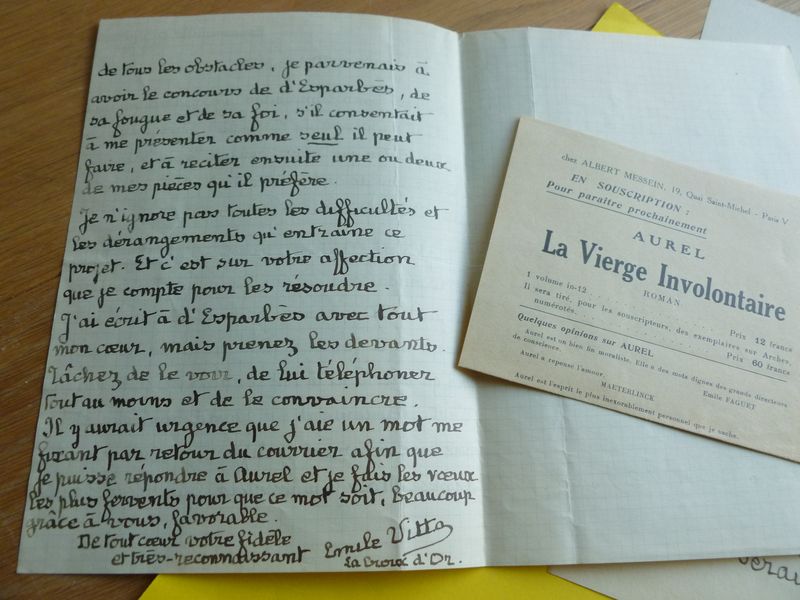 de tous les obstacles, je parvenais à
avoir le concours de d'Esparbès, de
sa fougue et de sa foi, s'il consentait
à me présenter comme seul il peut
faire, et à réciter ensuite une ou deux
de mes pièces qu'il préfère.
Je n'ignore pas toutes les difficultés et
les dérangements qu'entraîne ce
projet. Et c'est sur votre affection
que je compte pour les résoudre.
J'ai écrit à d'Esparbès avec tout
mon cœur, mais prenez les devants.
Tâchez de le voir, de lui téléphoner
tout au moins et de le convaincre.
Il y aurait urgence que j'aie un mot me
fixant par retour du courrier afin que
je puisse répondre à Aurel et je fais les vœux
les plus fervents pour que ce mot soit, beaucoup
grâce à vous, favorable.
De tout cœur votre fidèle
et très-reconnaissant Emile Vitta
La Croix d'Or.
chez ALBERT MESSEIN, 19, Quai Saint-Michel - Paris V
EN SOUSCRIPTION :
Pour paraître prochainement
AUREL
La Vierge Involontaire
ROMAN
1 volume in-12 . . . Prix 12 francs
Il sera tiré, pour les souscripteurs, des exemplaires sur Arches
numérotés. . . . Prix 60 francs
Quelques opinions sur AUREL
Aurel est un bien fin moraliste. Elle a des mots dignes des grands directeurs
de conscience. Emile FAGUET
Aurel a repensé l'amour. MAETERLINCK
Aurel est l'esprit le plus inexorablement personnel que je sache.